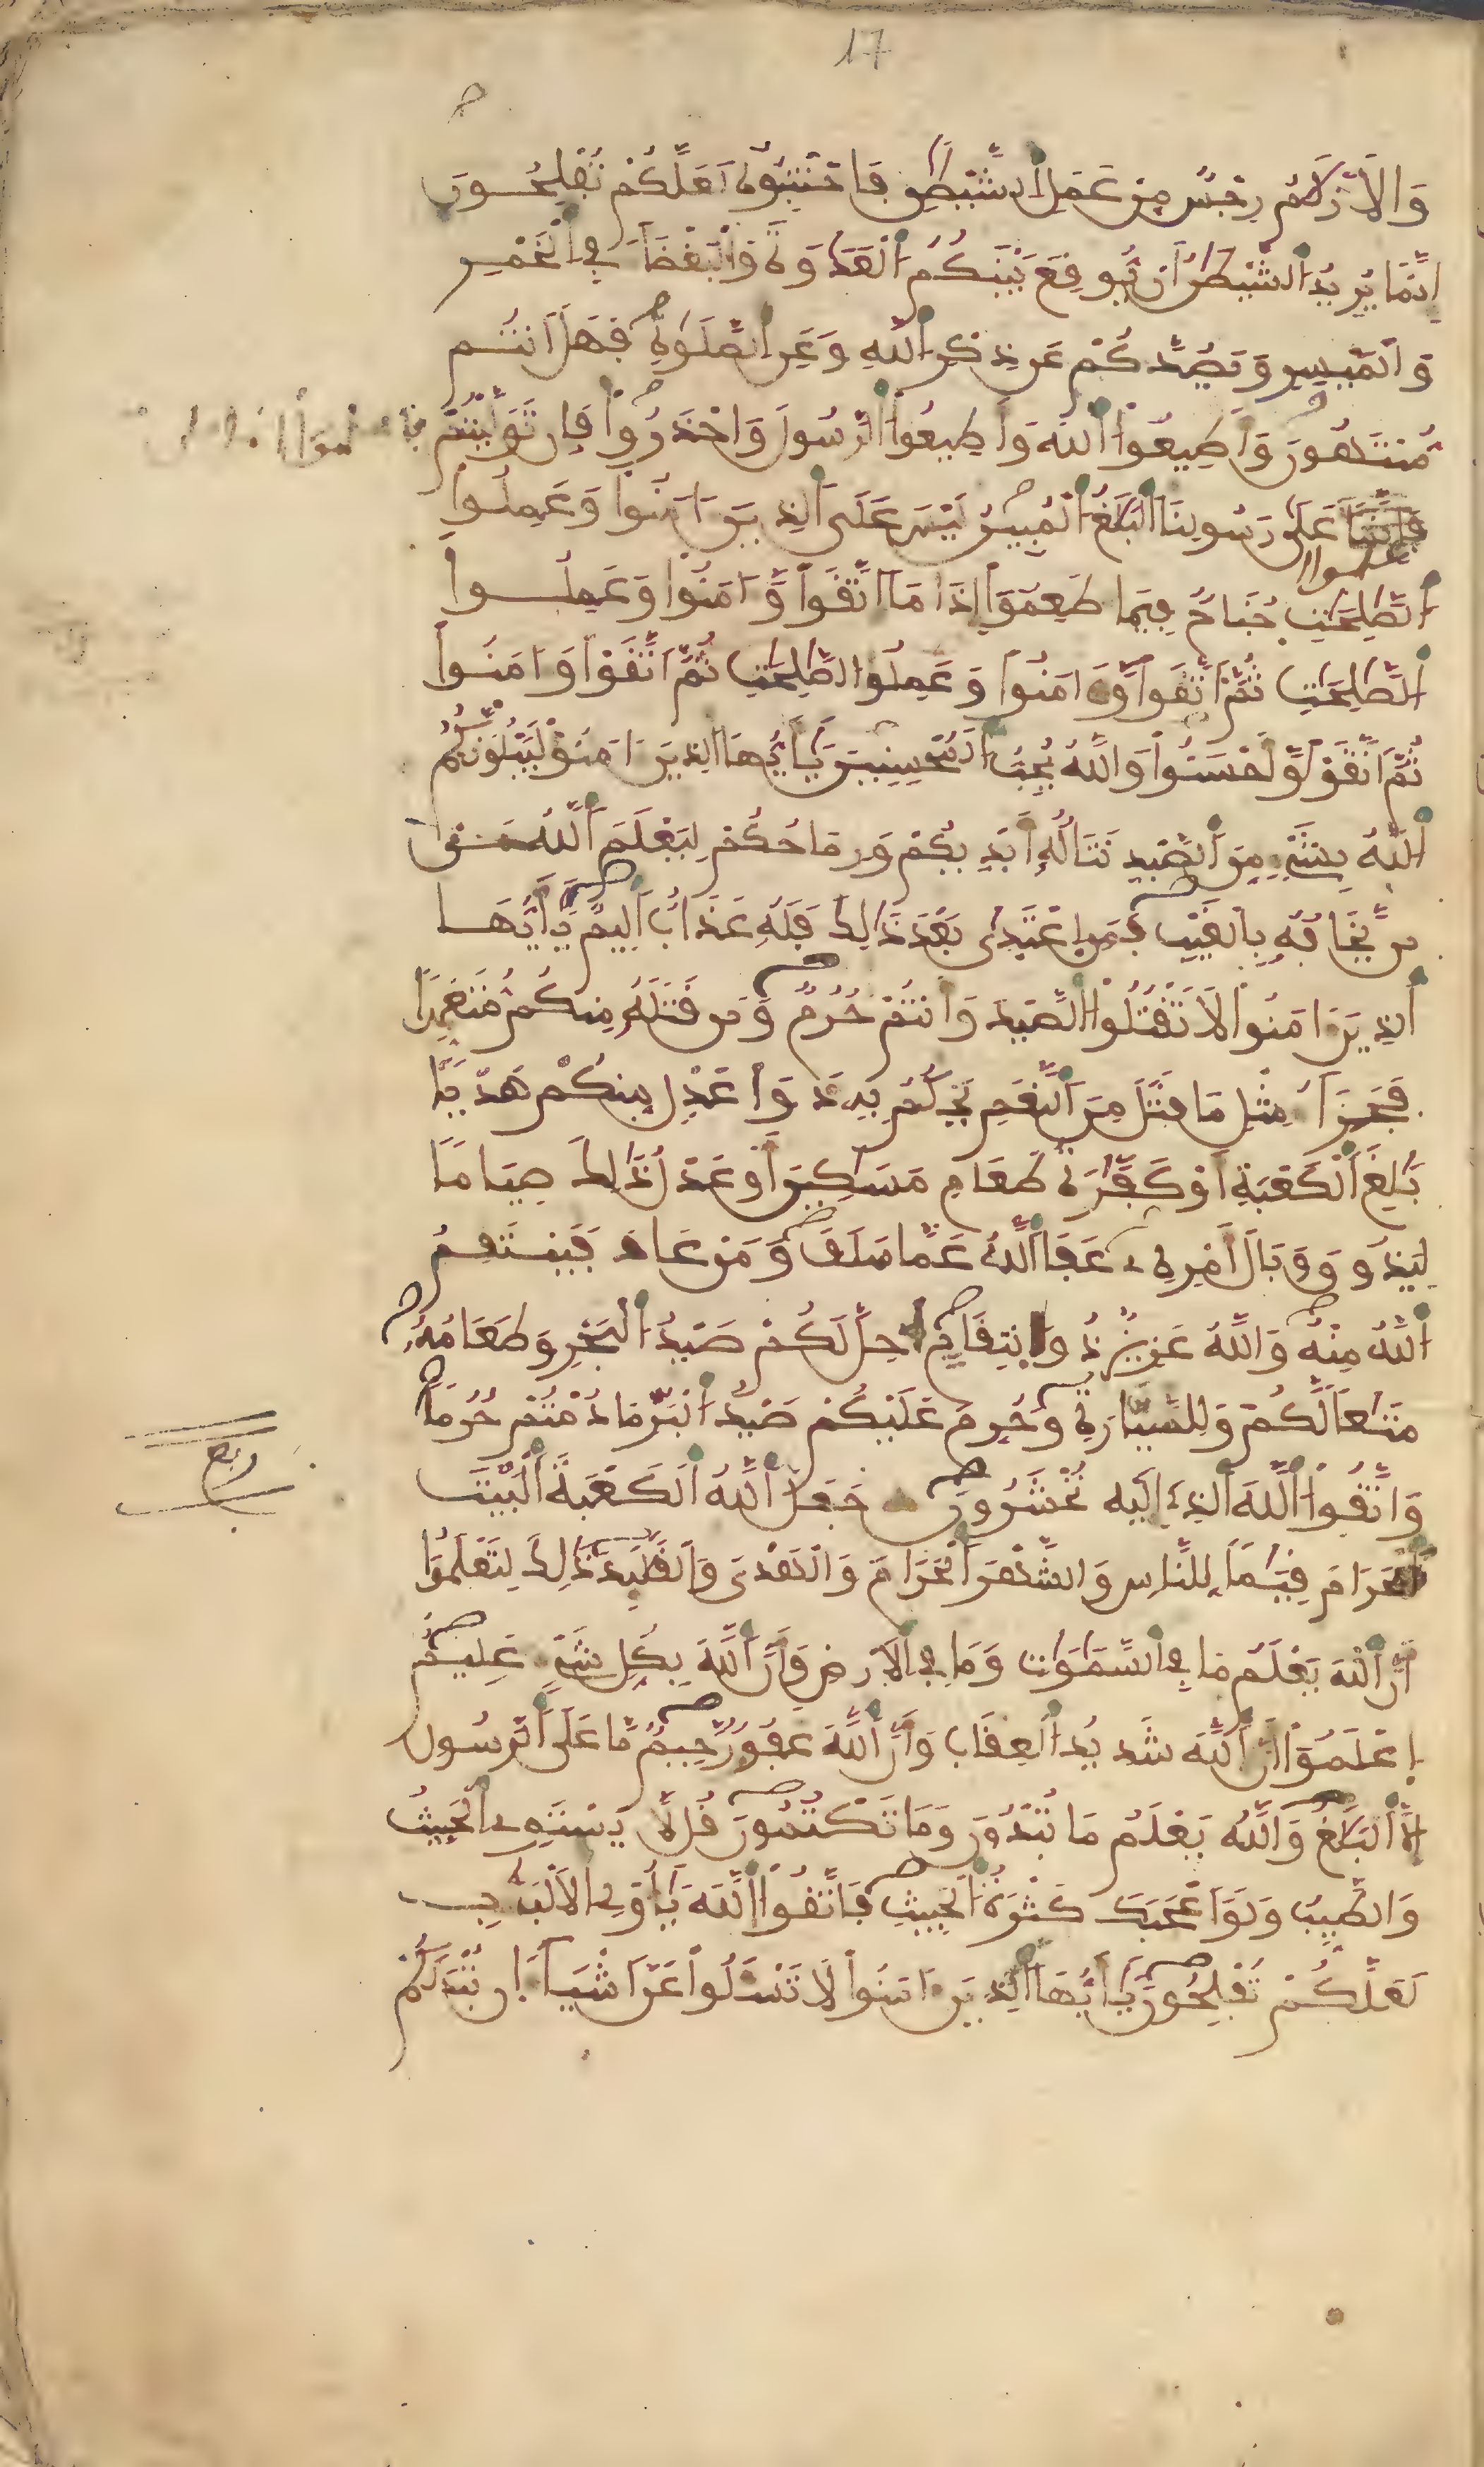 17
وَالَازْلَٰمُ رِجْسٌ مِّنْ عَمَلِ الشَّيْطَٰنِ فَاجْتَنِبُوهُ لَعَلَّكُمْ تُفْلِحُونَ
إِنَّمَا يُرِيدُ الشَّيْطَٰنُ أَنْ يُّوقِعَ بَيْنَكُمُ الْعَدَٰوَةَ وَالْبَغْضَآءَ فِي الْخَمْرِ
وَالْمَيْسِرِ وَيَصُدَّكُمْ عَن ذِكْرِ اللَّهِ وَعَنِ الصَّلَوٰةِ فَهَلَ أَنتُم
مُّنتَهُونَ وَأَطِيعُوا اللَّهَ وَأَطِيعُوا الرَّسُولَ وَاحْذَرُوا فَإِن تَوَلَّيْتُمْ
فَاعْلَمُوا أَنَّمَا
عَلَىٰ رَسُولِنَا الْبَلَٰغُ الْمُبِينُ لَيْسَ عَلَى الذِينَ ءَامَنُوا وَعَمِلُوا
الصَّٰلِحَٰتِ جُنَاحٌ فِيمَا طَعِمُوا إِذَا مَا اتَّقَوا وَّءَامَنُوا وَعَمِلُوا
الصَّٰلِحَٰتِ ثُمَّ اتَّقَوا وَّءَامَنُوا وَعَمِلُوا الصَّٰلِحَٰتِ ثُمَّ اتَّقَوا وَءَامَنُوا
ثُمَّ اتَّقَوا وَّأَحْسَنُوا وَاللَّهُ يُحِبُّ الْمُحْسِنِينَ يَٰأَيُّهَا الذِينَ ءَامَنُوا لَيَبْلُوَنَّكُمُ
اللَّهُ بِشَيْءٍ مِّنَ الصَّيْدِ تَنَالُهُ أَيْدِيكُمْ وَرِمَاحُكُمْ لِيَعْلَمَ اللَّهُ
مَن يَّخَافُهُ بِالْغَيْبِ فَمَنِ اعْتَدَىٰ بَعْدَ ذَٰلِكَ فَلَهُ عَذَابٌ أَلِيمٌ يَٰأَيُّهَا
الذِينَ ءَامَنُوا لَا تَقْتُلُوا الصَّيْدَ وَأَنتُمْ حُرُمٌ وَمَن قَتَلَهُ مِنكُم مُّتَعَمِّدًا
فَجَزَآءُ مِثْلِ مَا قَتَلَ مِنَ النَّعَمِ يَحْكُمُ بِهِ ذَوَا عَدْلٍ مِّنكُمْ هَدْيًا
بَٰلِغَ الْكَعْبَةِ أَوْ كَفَّٰرَةُ طَعَامِ مَسَٰكِينَ أَوْ عَدْلُ ذَٰلِكَ صِيَامًا
لِّيَذُوقَ وَبَالَ أَمْرِهِ عَفَا اللَّهُ عَمَّا سَلَفَ وَمَنْ عَادَ فَيَنتَقِمُ
اللَّهُ مِنْهُ وَاللَّهُ عَزِيزٌ ذُو انتِقَامٍ أُحِلَّ لَكُمْ صَيْدُ الْبَحْرِ وَطَعَامُهُ
مَتَٰعًا لَّكُمْ وَلِلسَّيَّارَةِ وَحُرِّمَ عَلَيْكُمْ صَيْدُ الْبَرِّ مَا دُمْتُمْ حُرُمًا
وَاتَّقُوا اللَّهَ الذِي إِلَيْهِ تُحْشَرُونَ جَعَلَ اللَّهُ الْكَعْبَةَ الْبَيْتَ
ربع
الْحَرَامَ قِيَٰمًا لِّلنَّاسِ وَالشَّهْرَ الْحَرَامَ وَالْهَدْيَ وَالْقَلَٰئِدَ ذَٰلِكَ لِتَعْلَمُوا
أَنَّ اللَّهَ يَعْلَمُ مَا فِي السَّمَٰوَٰتِ وَمَا فِي الَارْضِ وَأَنَّ اللَّهَ بِكُلِّ شَيْءٍ عَلِيمٌ
اِعْلَمُوا أَنَّ اللَّهَ شَدِيدُ الْعِقَابِ وَأَنَّ اللَّهَ غَفُورٌ رَّحِيمٌ مَّا عَلَى الرَّسُولِ
إِلَّا الْبَلَٰغُ وَاللَّهُ يَعْلَمُ مَا تُبْدُونَ وَمَا تَكْتُمُونَ قُل لَّا يَسْتَوِي الْخَبِيثُ
وَالطَّيِّبُ وَلَوَ أَعْجَبَكَ كَثْرَةُ الْخَبِيثِ فَاتَّقُوا اللَّهَ يَٰأُولِي الَالْبَٰبِ
لَعَلَّكُمْ تُفْلِحُونَ يَٰأَيُّهَا الذِينَ ءَامَنُوا لَا تَسْـَٔلُوا عَنَ أَشْيَآءَ إِن تُبْدَ لَكُمْ